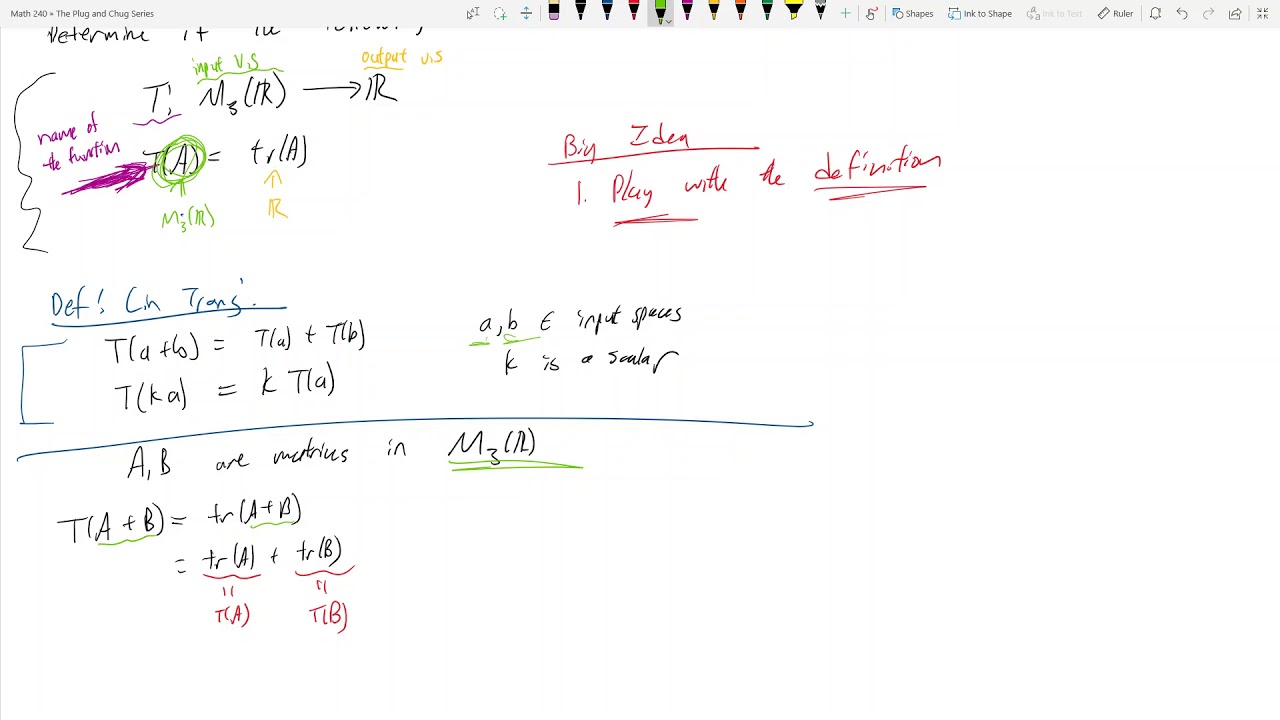 Math 240 » The Plug and Chug Series
Shapes
Ink to Shape
Ink to Text
Ruler
Determine if the following
input V.S
output V.S
T: M₃(ℝ) ⟶ ℝ
name of
the function
T(A) = tr(A)
M₃(ℝ)
ℝ
Big Idea
1. Play with the definition
Def! Lin Trans.
T(a+b) = T(a) + T(b)
a, b ∈ input spaces
T(ka) = k T(a)
k is a scalar
A, B are matrices in M₃(ℝ)
T(A + B) = tr(A+B)
= tr(A) + tr(B)
= =
T(A) T(B)